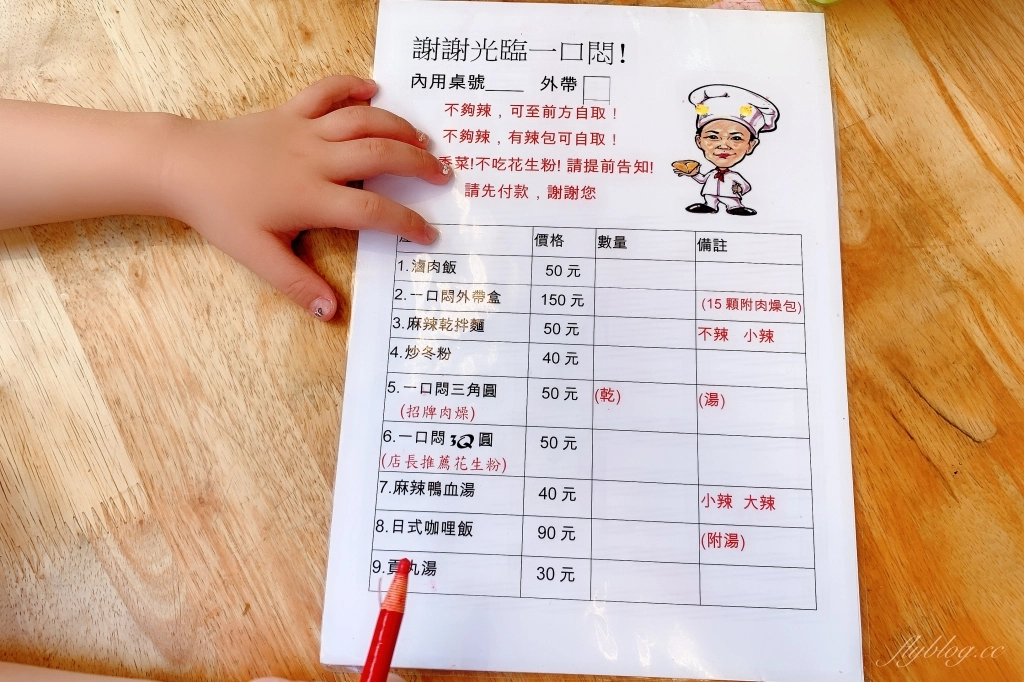 謝謝光臨一口悶!
內用桌號____ 外帶
不夠辣，可至前方自取！
不夠辣，有辣包可自取！
香菜!不吃花生粉! 請提前告知!
請先付款，謝謝您
價格 數量 備註
1.滷肉飯 50 元
2.一口悶外帶盒 150 元 (15 顆附肉燥包)
3.麻辣乾拌麵 50 元 不辣 小辣
4.炒冬粉 40 元
5.一口悶三角圓 50 元 (乾) (湯)
(招牌肉燥)
6.一口悶 3Q 圓 50 元
(店長推薦花生粉)
7.麻辣鴨血湯 40 元 小辣 大辣
8.日式咖哩飯 90 元 (附湯)
9.貢丸湯 30 元
flyblog.cc